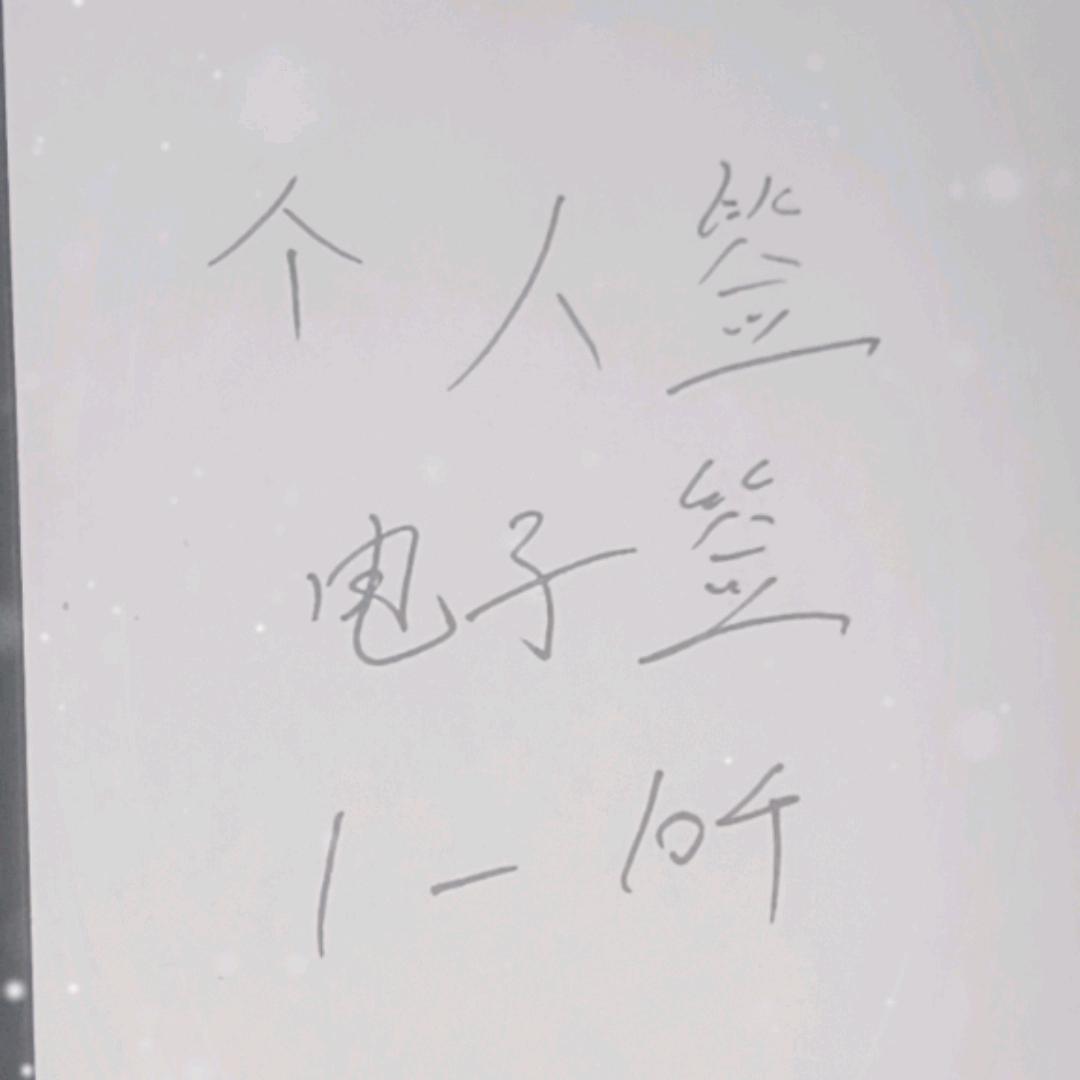 个人签
电子签
1-10千